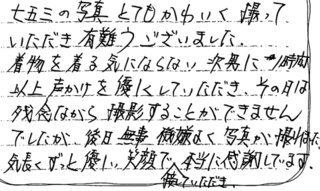 七五三の写真 とてもかわいく撮って
いただき有難うございました。
着物を着る気にならない次男に 1時間
以上 声かけを優しくしていただき、その日は
残念ながら 撮影することができません
でしたが、後日 無事 機嫌よく 写真が 撮れた。
気長くずっと優しい笑顔で、本当に感謝しています。
接していただき